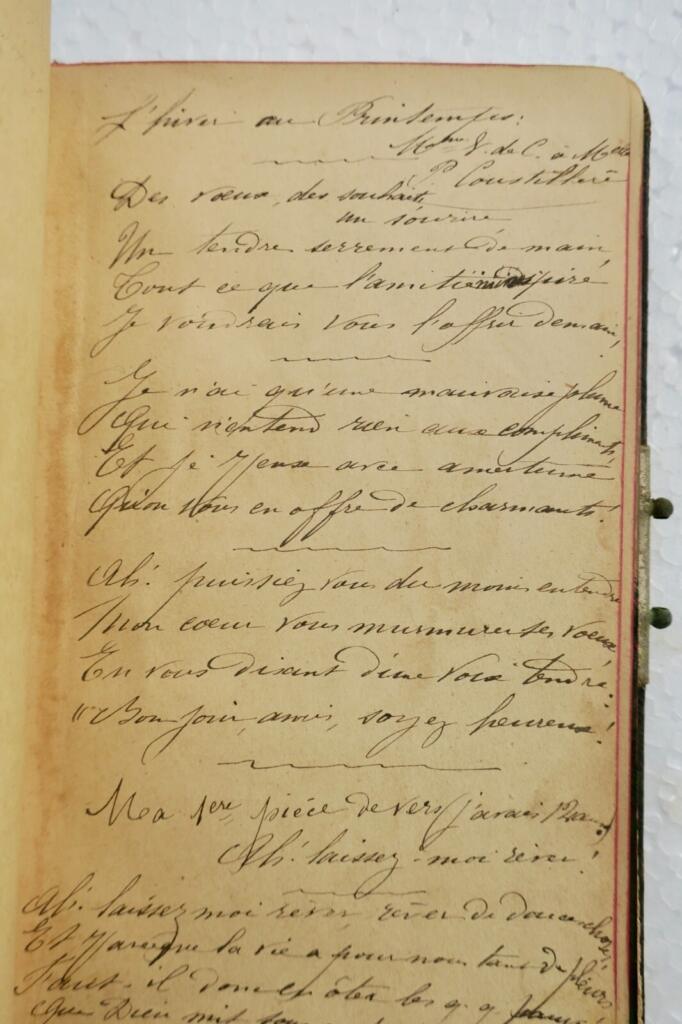 L'hiver au Printemps:
Mme V. de C. à Melle
P. Coustillière
Des vœux, des souhaits,
un sourire
Un tendre serrement de main,
Tout ce que l'amitié inspire
Je voudrais vous l'offrir demain!
Je n'ai qu'une mauvaise plume
Qui n'entend rien aux compliments,
Et je pense avec amertume
Qu'on vous en offre de charmants!
Ah! puissiez vous du moins entendre
Mon cœur vous murmurer ses vœux
En vous disant d'une voix tendre:
"Bonjour, amis, soyez heureux!
Ma 1ère pièce de vers (j'avais 12 ans)
Ah! laissez-moi rêver!
Ah! laissez moi rêver, rêver de douces choses
Et que la vie a pour nous tant de pleurs
Faut-il donc en ôter les q.q.
Que Dieu mit